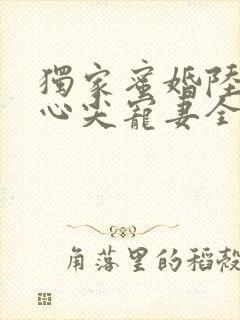 獨家蜜婚陸
心尖寵妻全
角落里的稻殼